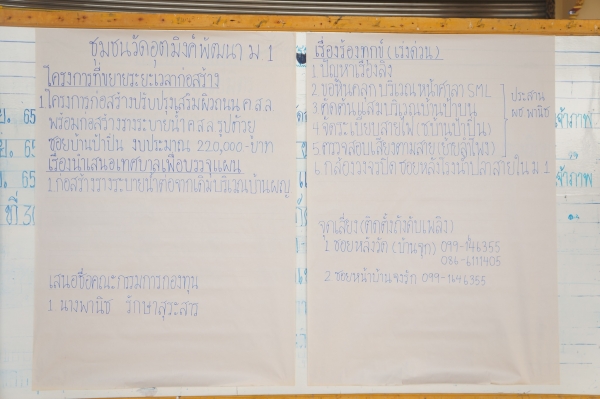 ชุมชนวัดอุตมิงค์พัฒนา ม 1
โครงการที่ขยายระยะเวลาก่อสร้าง
1.โครงการก่อสร้างปรับปรุงเสริมผิวถนน ค ส ล
พร้อมก่อสร้างรางระบายน้ำ ค ส ล รูปตัวยู
ซอยบ้านป้าปิ่น งบประมาณ 220,000.-บาท
เรื่องนำเสนอเทศบาลเพื่อบรรจุแผน
1.ก่อสร้างรางระบายน้ำต่อจากเดิมบริเวณบ้านผญ
เสนอชื่อคณะกรรมการกองทุน
1. นางพานิช รักษาสุระสาร
เรื่องร้องทุกข์ (เร่งด่วน)
1 ปัญหาเรื่องลิง
2 ขอหินคลุกบริเวณหน้าศาลา SML
3 ตัดต้นแสมบริเวณบ้านป้าบน
4 จัดระเบียบสายไฟ (ซบ้านป้าปิ่น)
5 ตรวจสอบเสียงตามสาย
ประสาน
ผช พานิช
6 กล้องวงจรปิด ซอยหลังโรงน้ำปลาสายใน ม 1
จุดเสี่ยง (ติดตั้งถังดับเพลิง)
1 ซอยหลังวัด
086-6111405
2 ซอยหน้าบ้าน
65
65
65